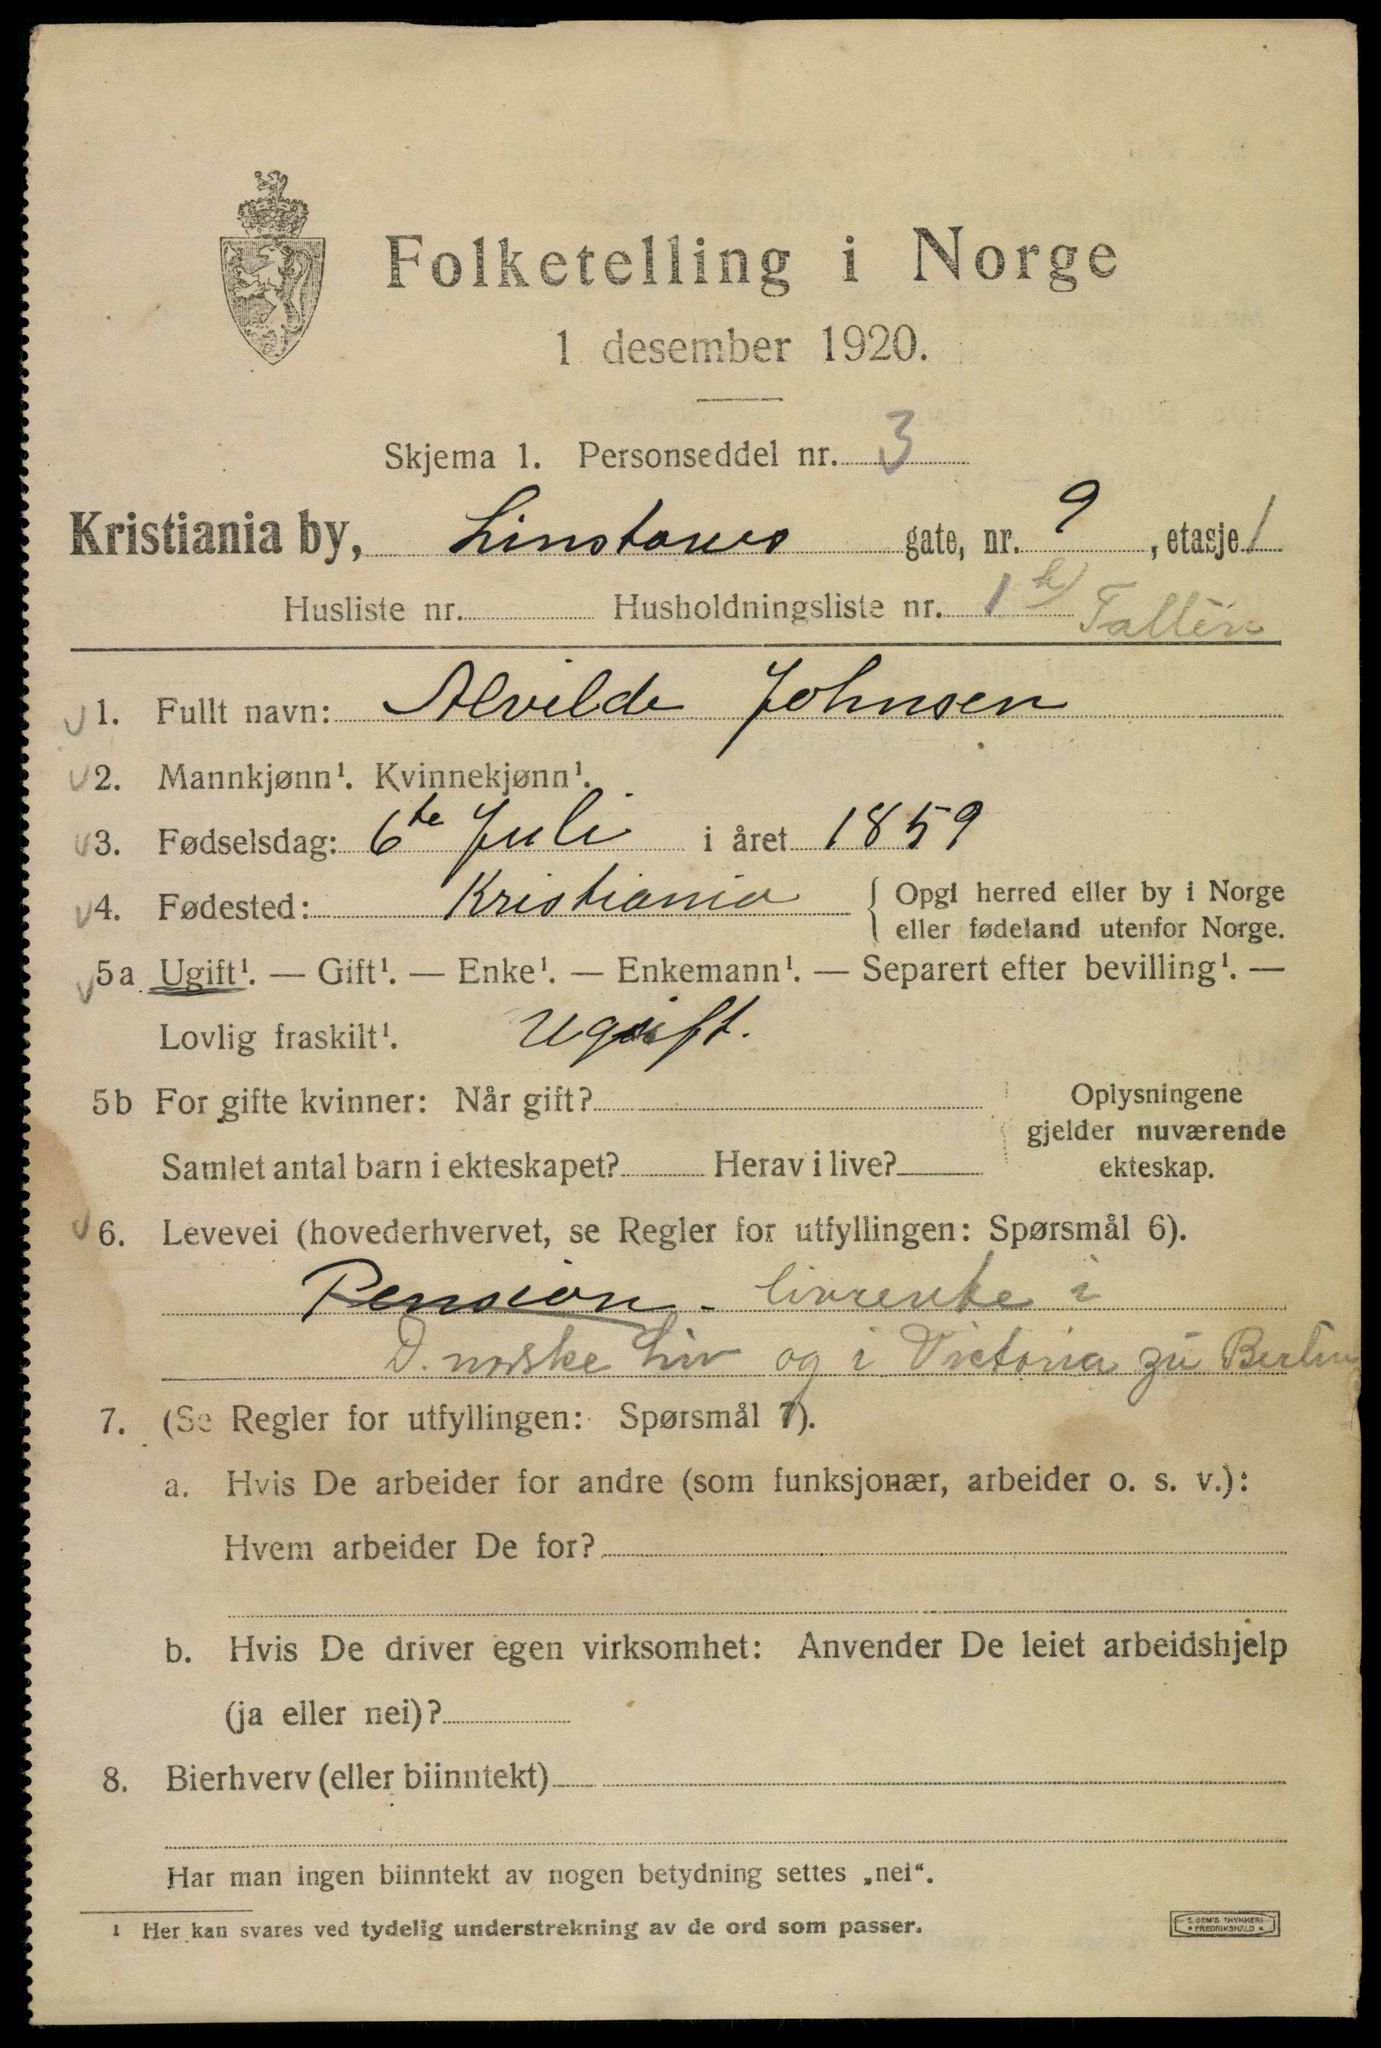 Folketelling i Norge
1 desember 1920.
Skjema 1. Personseddel nr. 3
Kristiania by, Linstows gate, nr. 9, etasje 1
Husliste nr. Husholdningsliste nr. 1
1. Fullt navn: Alvilde Johnsen
2. Mannkjønn¹. Kvinnekjønn¹.
3. Fødselsdag: 6te Juli i året 1859
4. Fødested: Kristiania { Opgi herred eller by i Norge
eller fødeland utenfor Norge.
5a Ugift¹. — Gift¹. — Enke¹. — Enkemann¹. — Separert efter bevilling¹. —
Lovlig fraskilt¹. Ugift.
5b For gifte kvinner: Når gift? Oplysningene
gjelder nuværende
Samlet antal barn i ekteskapet? Herav i live? ekteskap.
6. Levevei (hovederhvervet, se Regler for utfyllingen: Spørsmål 6).
Pension. livrente i
D. norske Liv og i Victoria zu Berlin
7. (Se Regler for utfyllingen: Spørsmål 7).
a. Hvis De arbeider for andre (som funksjonær, arbeider o. s. v.):
Hvem arbeider De for?
b. Hvis De driver egen virksomhet: Anvender De leiet arbeidshjelp
(ja eller nei)?
8. Bierhverv (eller biinntekt)
Har man ingen biinntekt av nogen betydning settes „nei“.
¹ Her kan svares ved tydelig understrekning av de ord som passer.